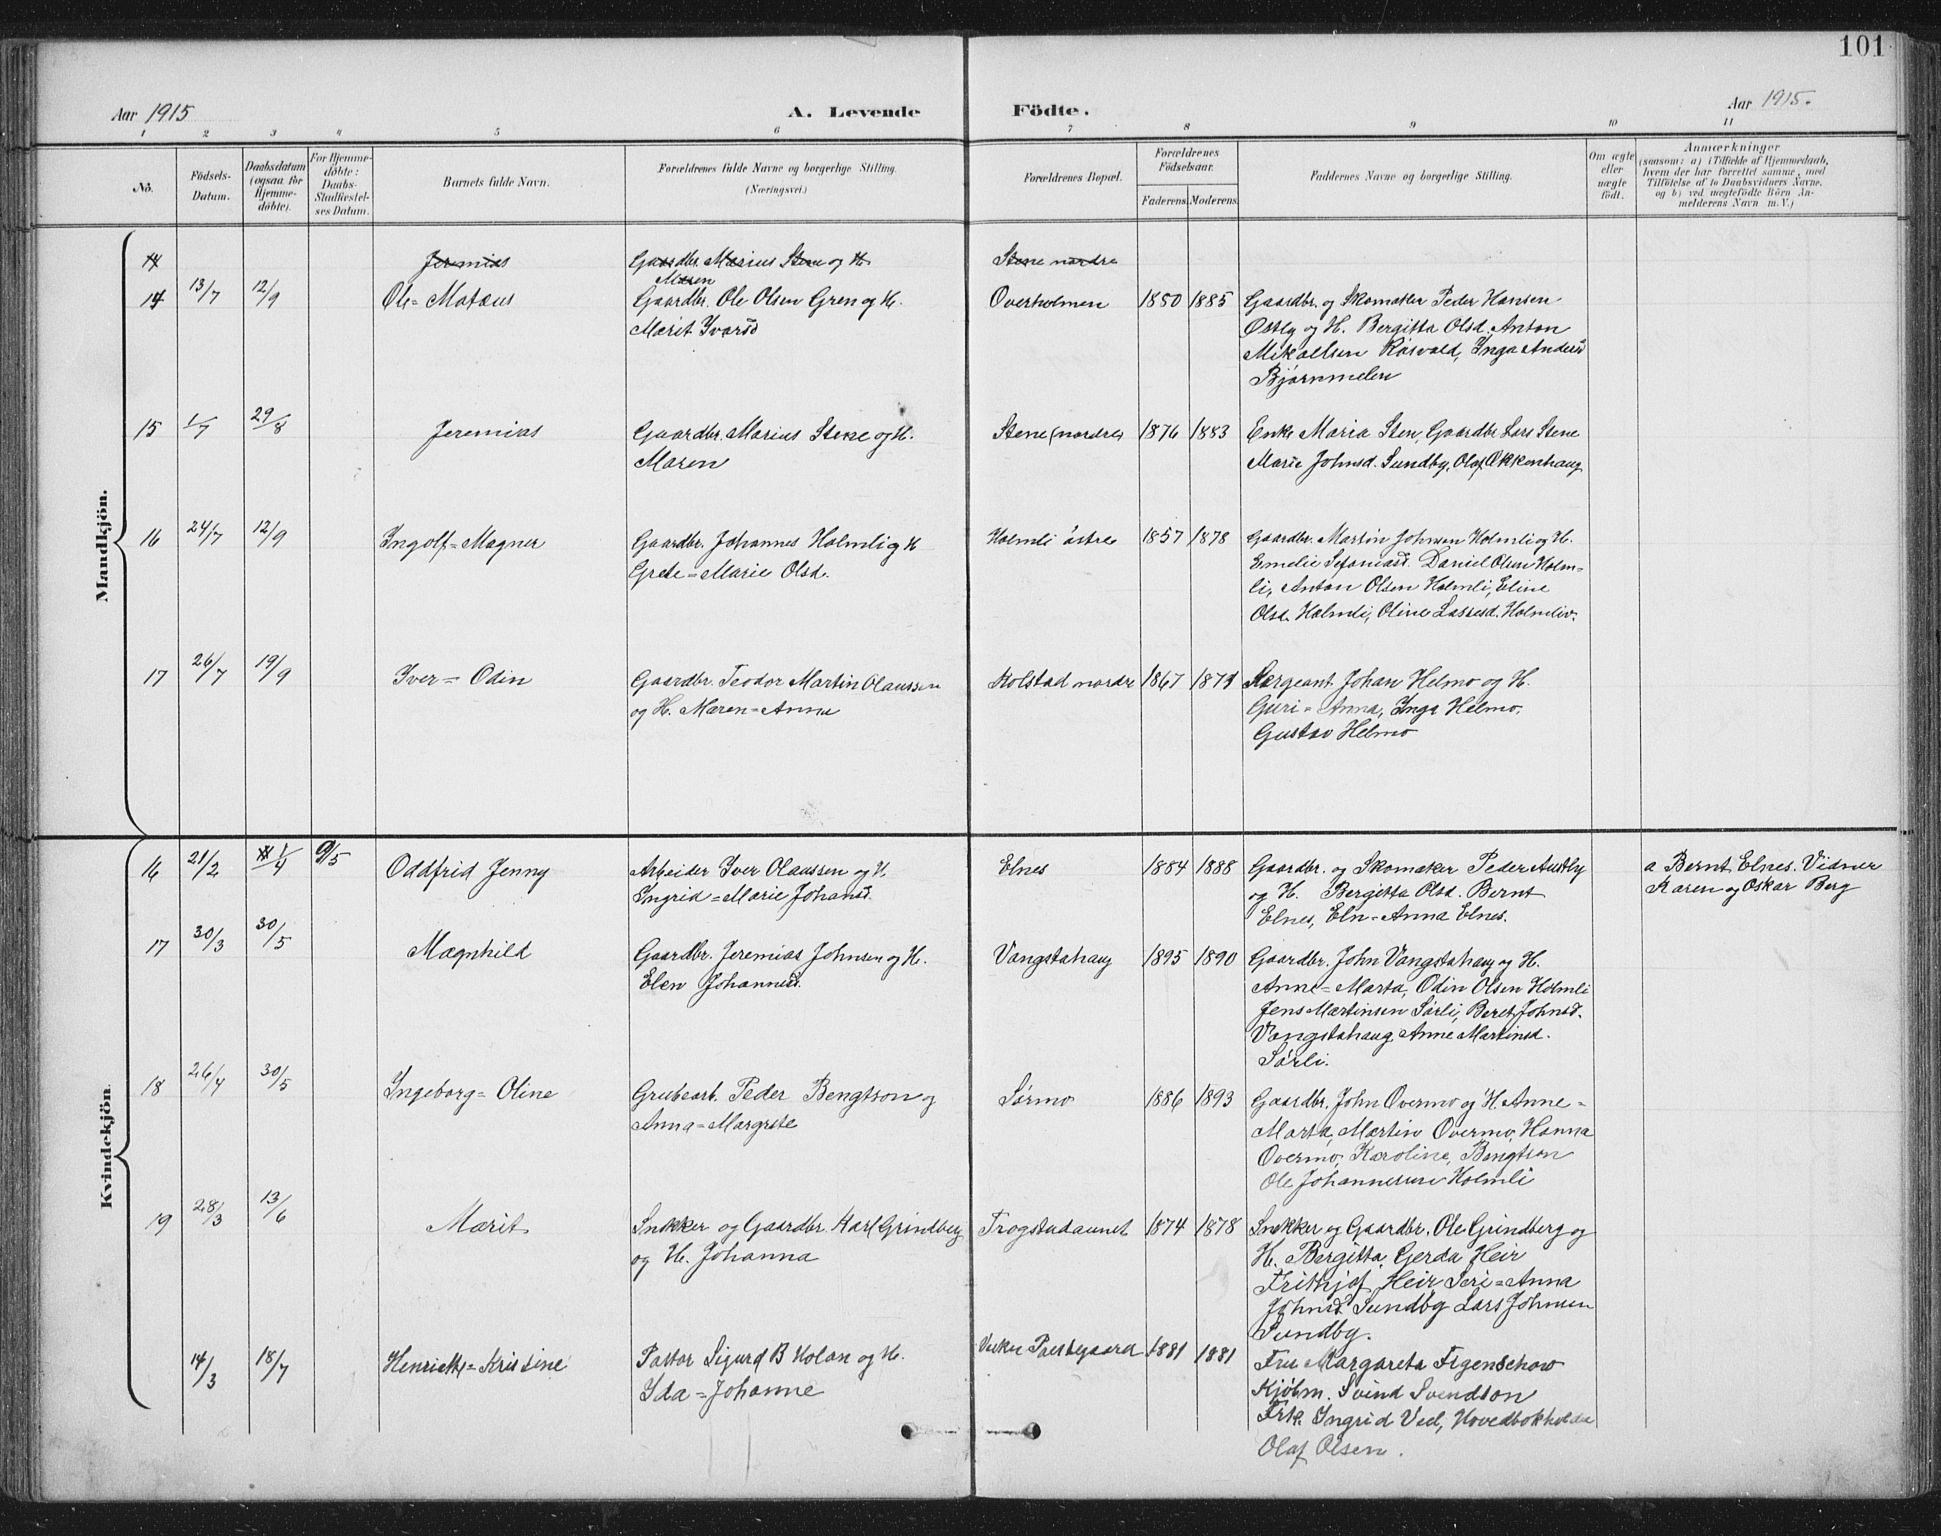 101
Aar 1915
A. Levende Födte.
Aar 1915.
1 2 3 4 5 6 7 8 9 10 11
No.
Födsels-
Datum.
Daabsdatum
(ogsaa for
Hjemme-
döbte).
For Hjemme-
döbte:
Daabs-
Stadfæstel-
ses Datum.
Barnets fulde Navn.
Forældrenes fulde Navne og borgerlige Stilling.
(Næringsvei.)
Forældrenes Bopæl.
Forældrenes
Födselsaar.
Faderens. Moderens.
Faddernes Navne og borgerlige Stilling.
Om ægte
eller
uægte
født.
Anmærkninger
(saasom: a) i Tilfælde af Hjemmedaab,
hvem der har forrettet samme, med
Tilföielse af to Daabsvidners Navne,
og b) ved uægtefödte Börn An-
melderens Navn m. V.)
Mandkjön.
14 Jeremias Gaardbr. Marius Stene og H. Stene nordre
Maren
14 13/7 12/9 Ole=Mataus Gaardbr. Ole Olsen Gren og H. Overholmen 1850 1885 Gaardbr. og Skomaker Peder Hansen
Marit Ivarsd Østby og H. Bergitta Olsd. Anton
Mikaelsen Rosvald, Inga Anders
Bjørnmelen
15 1/7 29/8 Jeremias Gaardbr. Marius Stene og H. Stene (nordre) 1876 1883 Enke Maria Sten, Gaardbr Lars Stene
Maren Marie Johnsd. Sundby, Olaf Okkenhaug
16 24/7 12/9 Ingolf=Magner Gaardbr. Johannes Holmli og H Holmli östre 1857 1878 Gaardbr. Martin Johnsen Holmli og H.
Grete=Marie Olsd. Emelie Sefaniasd. Daniel Olsen Holm=
li, Anton Olsen Holmli, Eline
Olsd. Holmli, Oline Lassesd. Holmliv.
17 26/7 19/9 Iver=Odin Gaardbr. Teodor Martin Olaussen Kolstad nordre 1867 1871 Sergeant Johan Helmo og H.
og H. Maren=Anna Guri=Anna, Inga Helmo,
Gustav Helmo
Kvindekjön.
16 21/2 1/4 9/5 Oddfrid Jenny Arbeider Iver Olaussen og H. Elnes 1884 1888 Gaardbr. og Skomaker Peder Austby a Bernt Elnes. Vidner
Ingrid=Marie Johansd. og H. Bergitta Olsd. Bernt Karen og Oskar Berg
Elnes, Eln=Anna Elnes.
17 30/3 30/5 Magnhild Gaardbr. Jeremias Johnsen og H. Vangstahaug 1895 1890 Gaardbr. John Vangstahaug og H.
Elen Johannesd. Anne=Marta, Odin Olsen Holmli
Jens Martinsen Sørli, Beret Johnsd.
Vangstahaug Anne Martinsd.
Sørli.
18 26/4 30/5 Ingeborg=Oline Grubearb. Peder Bengtson og Sørmo 1886 1893 Gaardbr. John Overmo og H. Anne=
Anna=Margrete Marta, Martin Overmo, Hanna
Overmo, Karoline, Bengtson
Ole Johannessen Holmli
19 28/3 13/6 Marit Snekker og Gaardbr. Karl Grindberg Trogstadaunet 1874 1878 Snekker og Gaardbr. Ole Grindberg og
og H. Johanna H. Bergitta, Gerda Heir
Frithjof Heir, Seri=Anna
Johnsd Sundby Lars Johnsen
Sundby.
14/3 18/7 Henriette=Kristine Pastor Sigurd B Holan og H. Prestegaard 1881 1881 Fru Margareta Figenschow
Ida=Johanne Kjøbm. Svend Svendson
Frk Ingrid Vee, Hovedbokholder
Olaf Olsen.